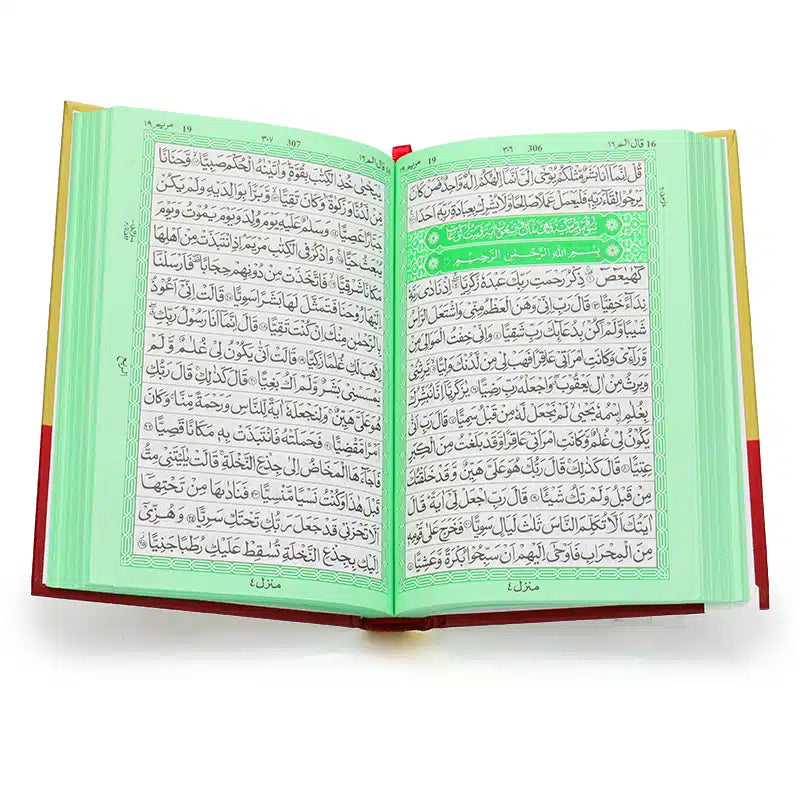 16 قال الم ١٦ 306 ٣٠٦ 19 مريم ١٩
قُلْ اِنَّمَآ اَنَا بَشَرٌ مِّثْلُكُمْ يُوْحٰٓى اِلَىَّ اَنَّمَآ اِلٰهُكُمْ اِلٰهٌ وَّاحِدٌ ۚ فَمَنْ كَانَ
يَرْجُوْا لِقَآءَ رَبِّهٖ فَلْيَعْمَلْ عَمَلًا صَالِحًا وَّلَا يُشْرِكْ بِعِبَادَةِ رَبِّهٖٓ اَحَدًا
بِسْمِ اللّٰهِ الرَّحْمٰنِ الرَّحِيْمِ
كٓهٰيٰعٓصٓ ۚ ذِكْرُ رَحْمَتِ رَبِّكَ عَبْدَهٗ زَكَرِيَّا ۚ اِذْ نَادٰى رَبَّهٗ
نِدَآءً خَفِيًّا قَالَ رَبِّ اِنِّىْ وَهَنَ الْعَظْمُ مِنِّىْ وَاشْتَعَلَ الرَّاْسُ
شَيْبًا وَّلَمْ اَكُنْۢ بِدُعَآئِكَ رَبِّ شَقِيًّا وَاِنِّىْ خِفْتُ الْمَوَالِىَ مِنْ
وَّرَآءِىْ وَكَانَتِ امْرَاَتِىْ عَاقِرًا فَهَبْ لِىْ مِنْ لَّدُنْكَ وَلِيًّا يَّرِثُنِىْ
وَيَرِثُ مِنْ اٰلِ يَعْقُوْبَ وَاجْعَلْهُ رَبِّ رَضِيًّا يٰزَكَرِيَّآ اِنَّا نُبَشِّرُكَ
بِغُلٰمِۨ اسْمُهٗ يَحْيٰى لَمْ نَجْعَلْ لَّهٗ مِنْ قَبْلُ سَمِيًّا قَالَ رَبِّ اَنّٰى
يَكُوْنُ لِىْ غُلٰمٌ وَّكَانَتِ امْرَاَتِىْ عَاقِرًا وَّقَدْ بَلَغْتُ مِنَ الْكِبَرِ
عِتِيًّا قَالَ كَذٰلِكَ ۚ قَالَ رَبُّكَ هُوَ عَلَىَّ هَيِّنٌ وَّقَدْ خَلَقْتُكَ
مِنْ قَبْلُ وَلَمْ تَكُ شَيْـًٔا قَالَ رَبِّ اجْعَلْ لِّىْٓ اٰيَةً ۚ قَالَ
اٰيَتُكَ اَلَّا تُكَلِّمَ النَّاسَ ثَلٰثَ لَيَالٍ سَوِيًّا فَخَرَجَ عَلٰى قَوْمِهٖ
مِنَ الْمِحْرَابِ فَاَوْحٰٓى اِلَيْهِمْ اَنْ سَبِّحُوْا بُكْرَةً وَّعَشِيًّا
منزل ٤
16 قال الم ١٦ 307 ٣٠٧ 19 مريم ١٩
يٰيَحْيٰى خُذِ الْكِتٰبَ بِقُوَّةٍ ۚ وَاٰتَيْنٰهُ الْحُكْمَ صَبِيًّا وَّحَنَانًا
مِّنْ لَّدُنَّا وَزَكٰوةً ۚ وَكَانَ تَقِيًّا وَّبَرًّۢا بِوَالِدَيْهِ وَلَمْ يَكُنْ
جَبَّارًا عَصِيًّا وَسَلٰمٌ عَلَيْهِ يَوْمَ وُلِدَ وَيَوْمَ يَمُوْتُ وَيَوْمَ
يُبْعَثُ حَيًّا وَاذْكُرْ فِى الْكِتٰبِ مَرْيَمَ ۘ اِذِ انْتَبَذَتْ مِنْ اَهْلِهَا
مَكَانًا شَرْقِيًّا فَاتَّخَذَتْ مِنْ دُوْنِهِمْ حِجَابًا ۚ فَاَرْسَلْنَآ
اِلَيْهَا رُوْحَنَا فَتَمَثَّلَ لَهَا بَشَرًا سَوِيًّا قَالَتْ اِنِّىْٓ اَعُوْذُ
بِالرَّحْمٰنِ مِنْكَ اِنْ كُنْتَ تَقِيًّا قَالَ اِنَّمَآ اَنَا رَسُوْلُ رَبِّكِ
لِاَهَبَ لَكِ غُلٰمًا زَكِيًّا قَالَتْ اَنّٰى يَكُوْنُ لِىْ غُلٰمٌ وَّلَمْ
يَمْسَسْنِىْ بَشَرٌ وَّلَمْ اَكُ بَغِيًّا قَالَ كَذٰلِكِ ۚ قَالَ رَبُّكِ
هُوَ عَلَىَّ هَيِّنٌ ۚ وَلِنَجْعَلَهٗٓ اٰيَةً لِّلنَّاسِ وَرَحْمَةً مِّنَّا ۚ وَكَانَ
اَمْرًا مَّقْضِيًّا فَحَمَلَتْهُ فَانْتَبَذَتْ بِهٖ مَكَانًا قَصِيًّا ٢٢
فَاَجَآءَهَا الْمَخَاضُ اِلٰى جِذْعِ النَّخْلَةِ ۚ قَالَتْ يٰلَيْتَنِىْ مِتُّ
قَبْلَ هٰذَا وَكُنْتُ نَسْيًا مَّنْسِيًّا ٢٣ فَنَادٰىهَا مِنْ تَحْتِهَآ
اَلَّا تَحْزَنِىْ قَدْ جَعَلَ رَبُّكِ تَحْتَكِ سَرِيًّا ٢٤ وَهُزِّىْٓ
اِلَيْكِ بِجِذْعِ النَّخْلَةِ تُسٰقِطْ عَلَيْكِ رُطَبًا جَنِيًّا ٢٥
منزل ٤